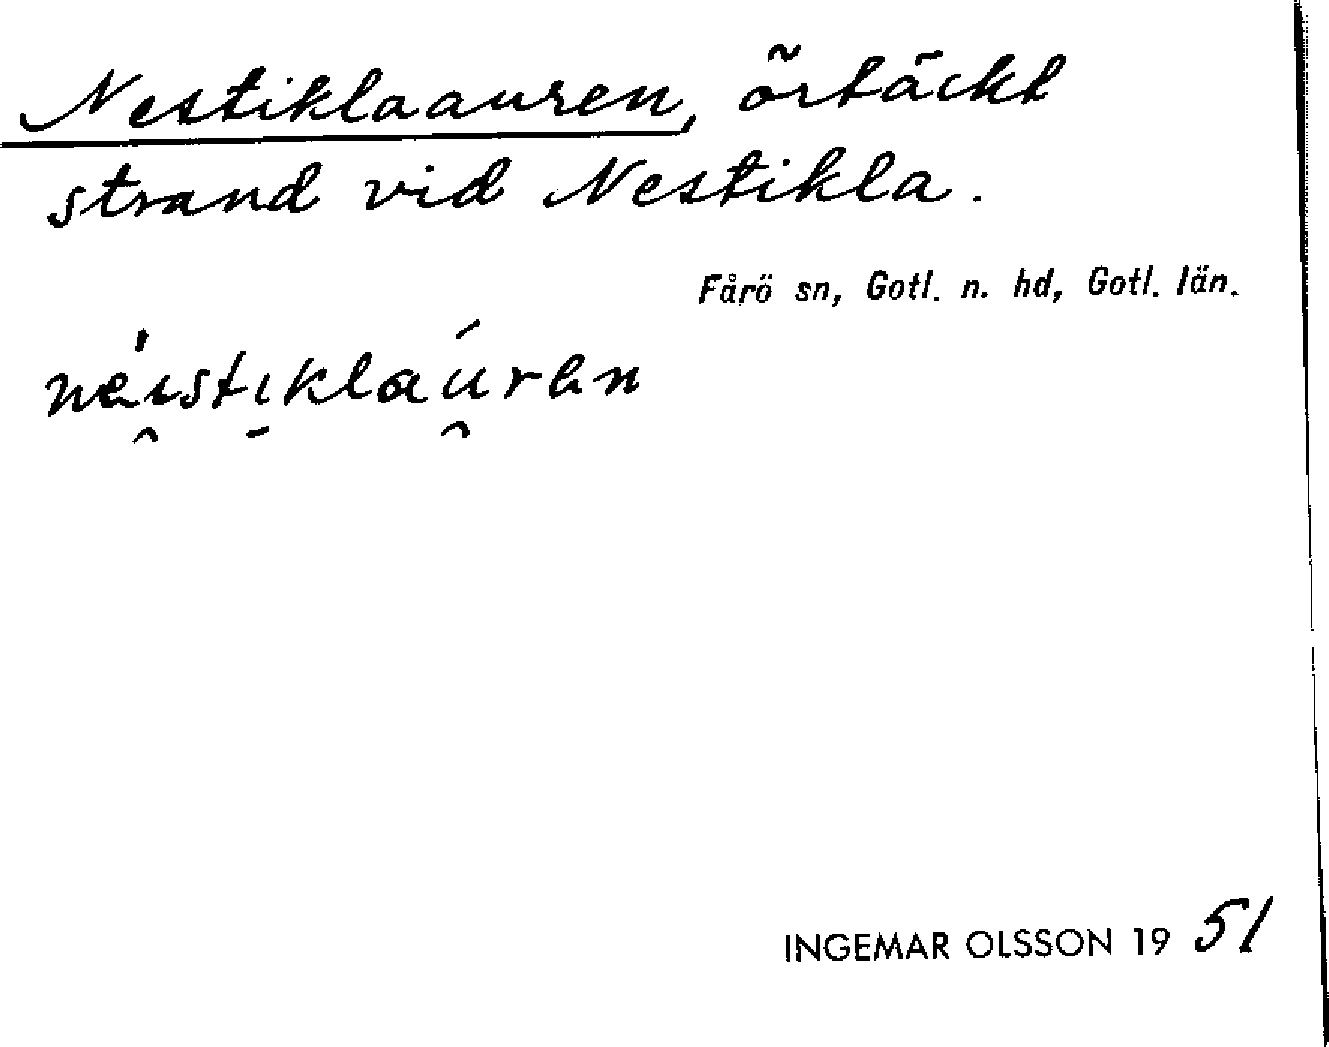 Nestiklaauren, örtäckt
strand vid Nestikla.
Fårö sn, Gotl. n. hd, Gotl. län.
INGEMAR OLSSON 19 51